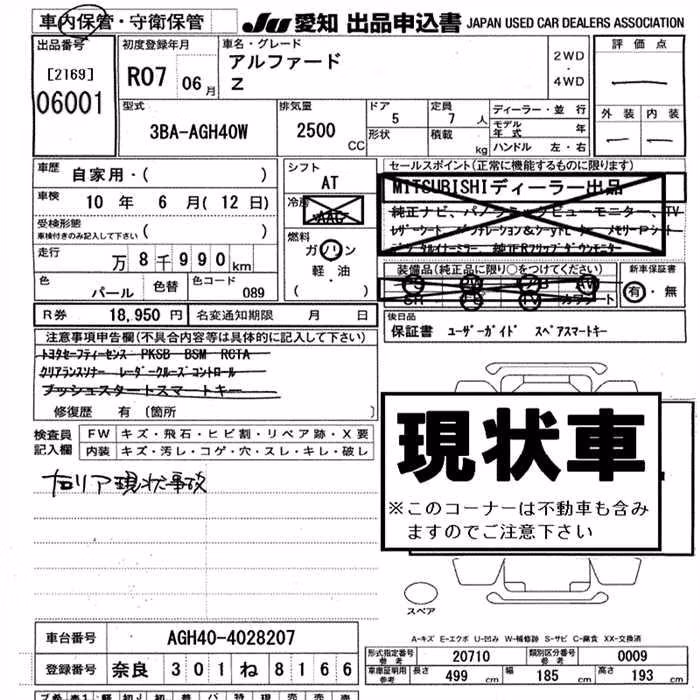 車内保管・守衛保管
JU 愛知 出品申込書 JAPAN USED CAR DEALERS ASSOCIATION
出品番号
[2169]
06001
初度登録年月
R07 06月
車名・グレード
アルファード
Z
2WD
・
4WD
評価点
―
外装 内装
― ―
型式
3BA-AGH40W
排気量
2500 CC
ドア 5
形状
定員 7 人
積載 kg
ディーラー・並行
モデル年式 年
ハンドル 左・右
車歴 自家用・( )
車検 10 年 6 月( 12 日)
受検形態
車検付きのみ記入して下さい ( )
走行 万 8 千 990 km
色 パール
色替
色コード 089
シフト
AT
冷房
AAC
燃料
ガソリン
軽・油
( )
セールスポイント(正常に機能するものに限ります)
MITSUBISHIディーラー出品
純正ナビ、パノラミックビューモニター、TV
デジタルインナーミラー 純正Rフリップダウンモニター
装備品(純正品に限り○をつけてください)
新車保証書
有・無
R券 18,950 円
名変通知期限 月 日
後日品
保証書 ユーザーガイド スペアスマートキー
注意事項申告欄(不具合内容等は具体的に記入して下さい)
トヨタセーフティーセンス PKSB BSM RCTA
クリアランスソナー レーダークルーズコントロール
プッシュスタートスマートキー
修復歴 有 〔箇所 〕
検査員記入欄
FW キズ・飛石・ヒビ割・リペア跡・X要
内装 キズ・汚レ・コゲ・穴・スレ・キレ・破レ
現状車
※このコーナーは不動車も含みますのでご注意下さい
スペア
A-キズ E-エクボ U-凹み W-補修跡 S-サビ C-腐食 XX-交換済
車台番号 AGH40-4028207
登録番号 奈良 301 ね 8166
形式指定番号 参考 20710
類別区分番号 参考 0009
車庫証明用 参考 長さ 499 cm 幅 185 cm 高さ 193 cm